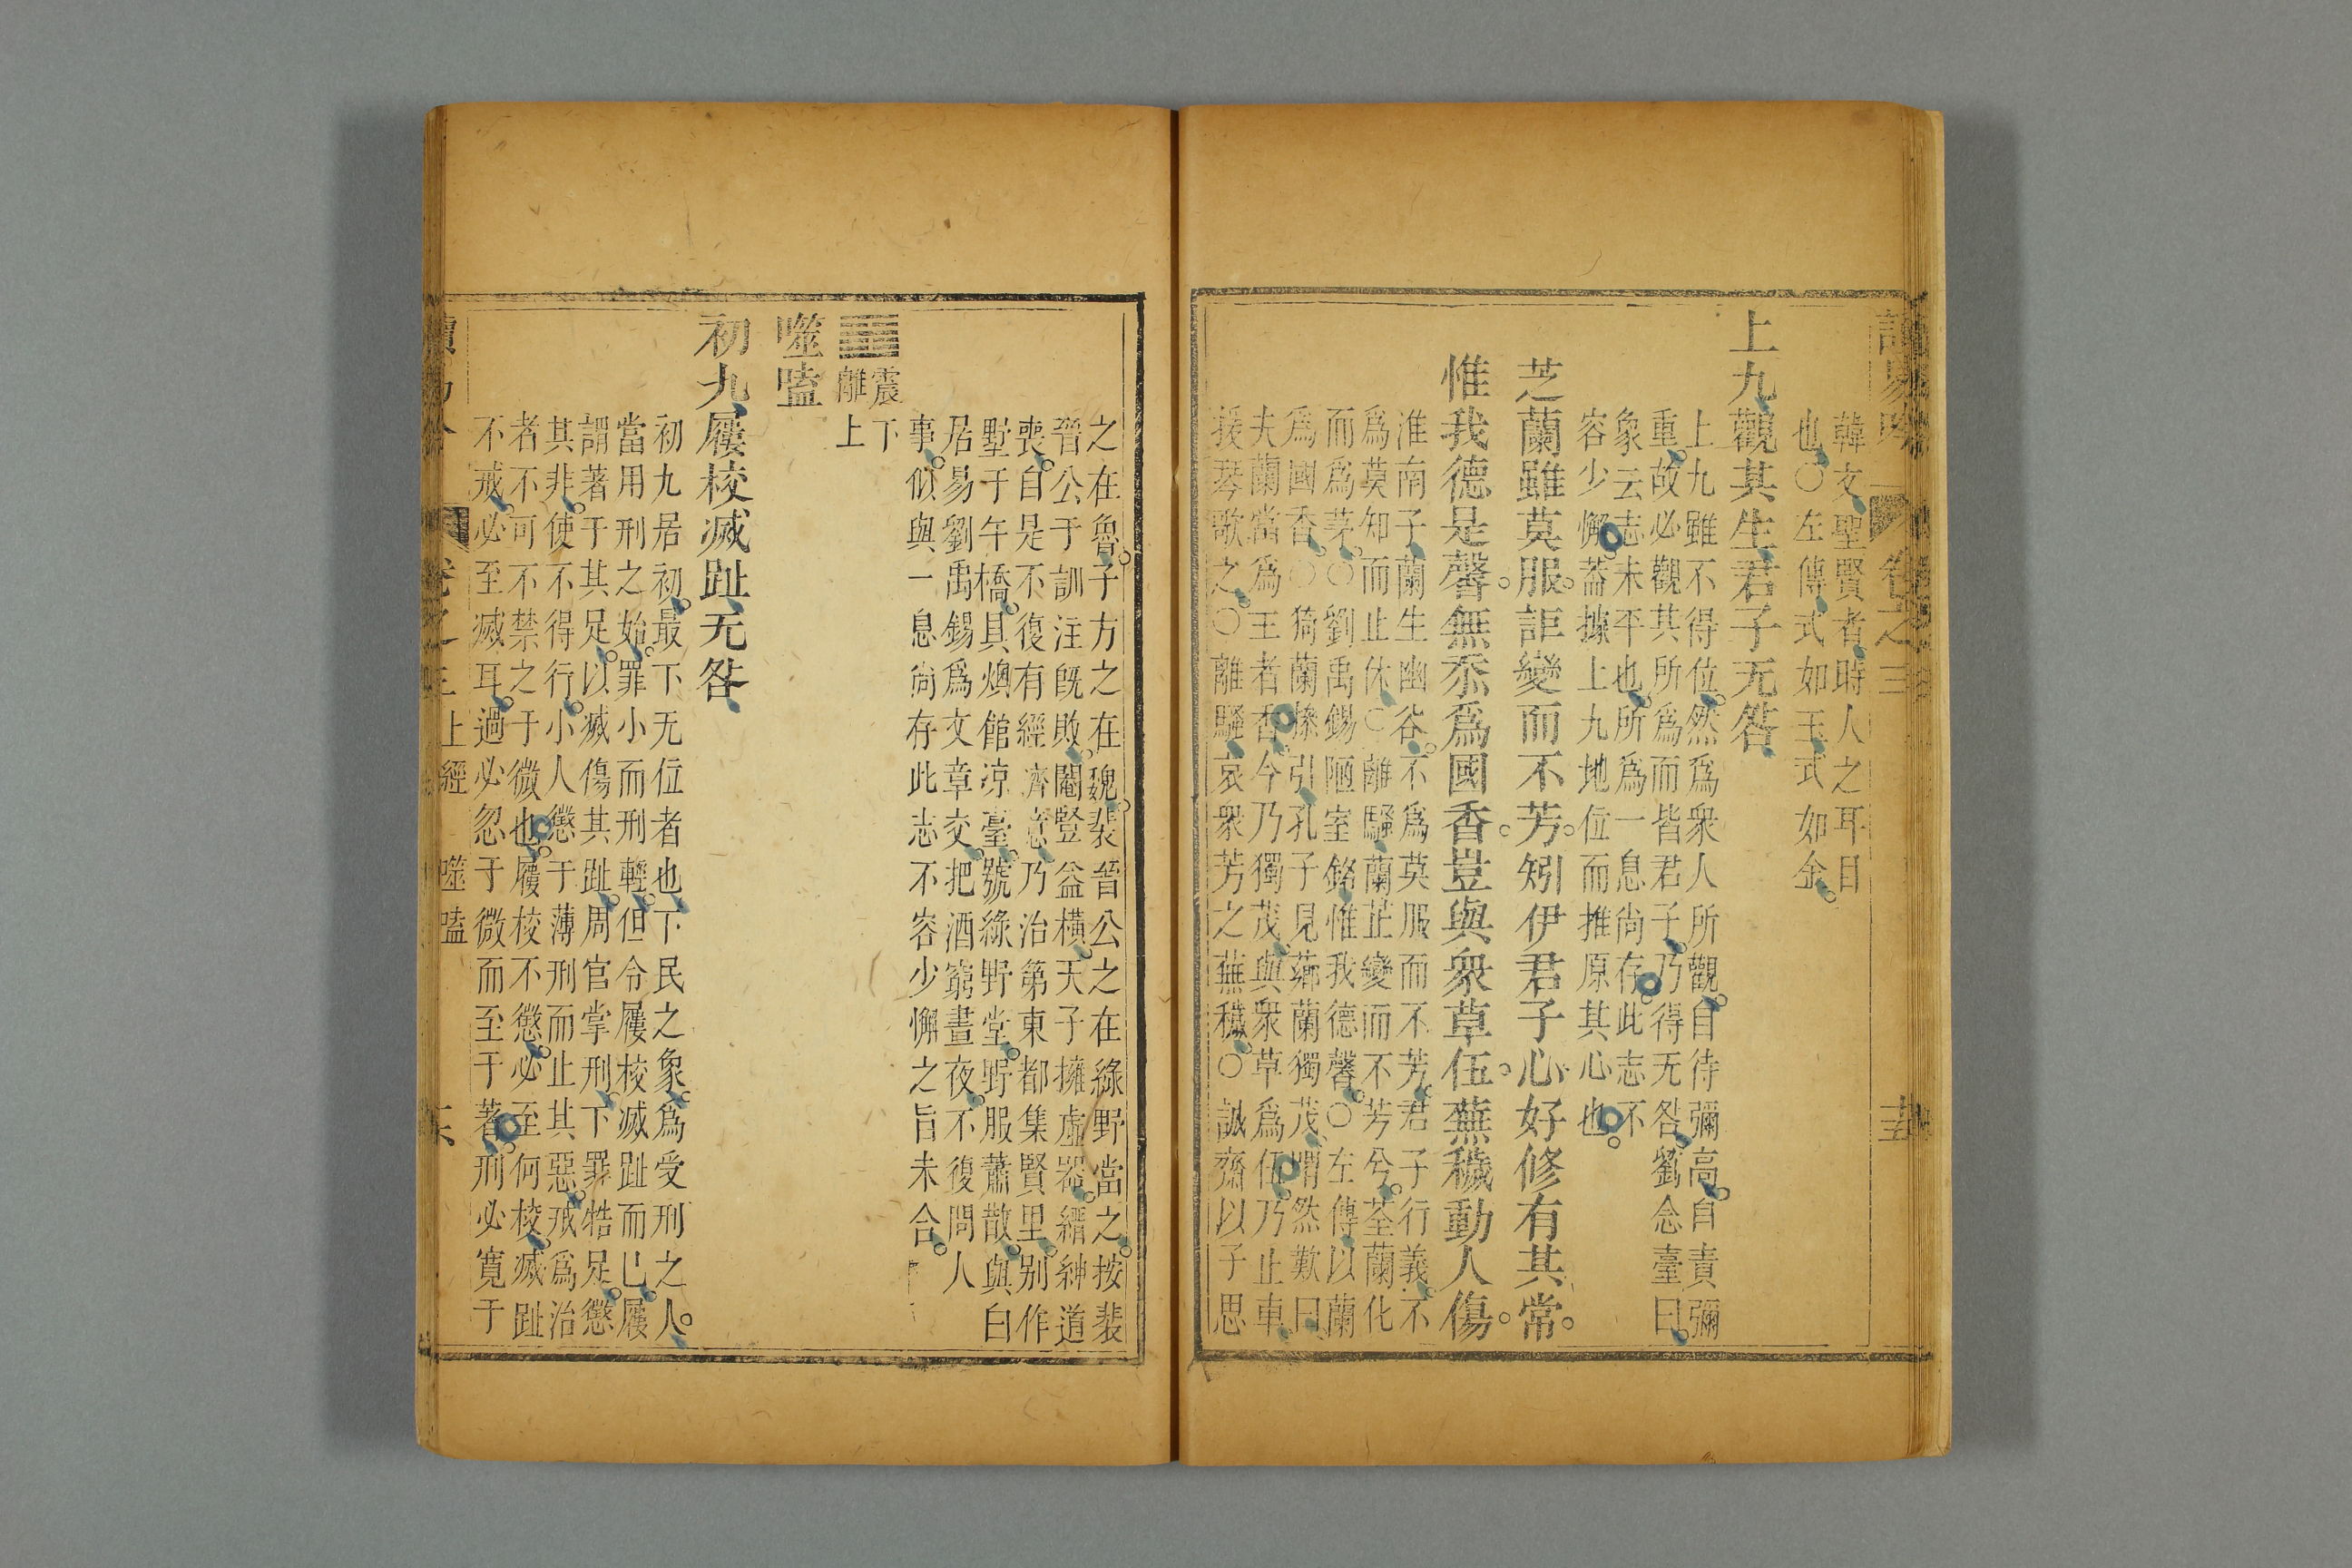 卷之三
韓文聖賢者時人之耳目
也○左傳式如玉式如金
上九觀其生君子无咎
上九雖不得位然爲衆人所觀自待彌高自責彌
重故必觀其所爲而皆君子乃得无咎劉念臺曰
象云志未平也所爲一息尙存此志不
容少懈葢據上九地位而推原其心也
芝蘭雖莫服詎變而不芳矧伊君子心好修有其常
惟我德是馨無忝爲國香豈與衆草伍蕪穢動人傷
淮南子蘭生幽谷不爲莫服而不芳君子行義不
爲莫知而止休○離騷蘭芷變而不芳兮荃蘭化
而爲茅○劉禹錫陋室銘惟我德馨○左傳以蘭
爲國香○猗蘭操引孔子見薌蘭獨茂喟然歎曰
夫蘭當爲王者香今乃獨茂與衆草爲伍乃止車
援琴歌之○離騷哀衆芳之蕪穢○誠齋以子思
之在魯子方之在魏裴晉公之在綠野當之按裴
晉公于訓注旣敗閹豎益橫天子擁虛器縉紳道
喪自是不復有經濟意乃治第東都集賢里別作
墅于午橋具燠館凉臺號綠野堂野服蕭散與白
居易劉禹錫爲文章交把酒窮晝夜不復問人
事似與一息尙存此志不容少懈之旨未合
震下
離上
噬嗑
初九屨校滅趾无咎
初九居初最下无位者也下民之象爲受刑之人
當用刑之始罪小而刑輕但令屨校滅趾而已屨
謂著于其足以滅傷其趾周官掌刑下罪牿足懲
其非使不得行小人懲于薄刑而止其惡戒爲治
者不可不禁之于微也屨校不懲必至何校滅趾
不戒必至滅耳過必忽于微而至于著刑必寬于
卷之三 上經 噬嗑